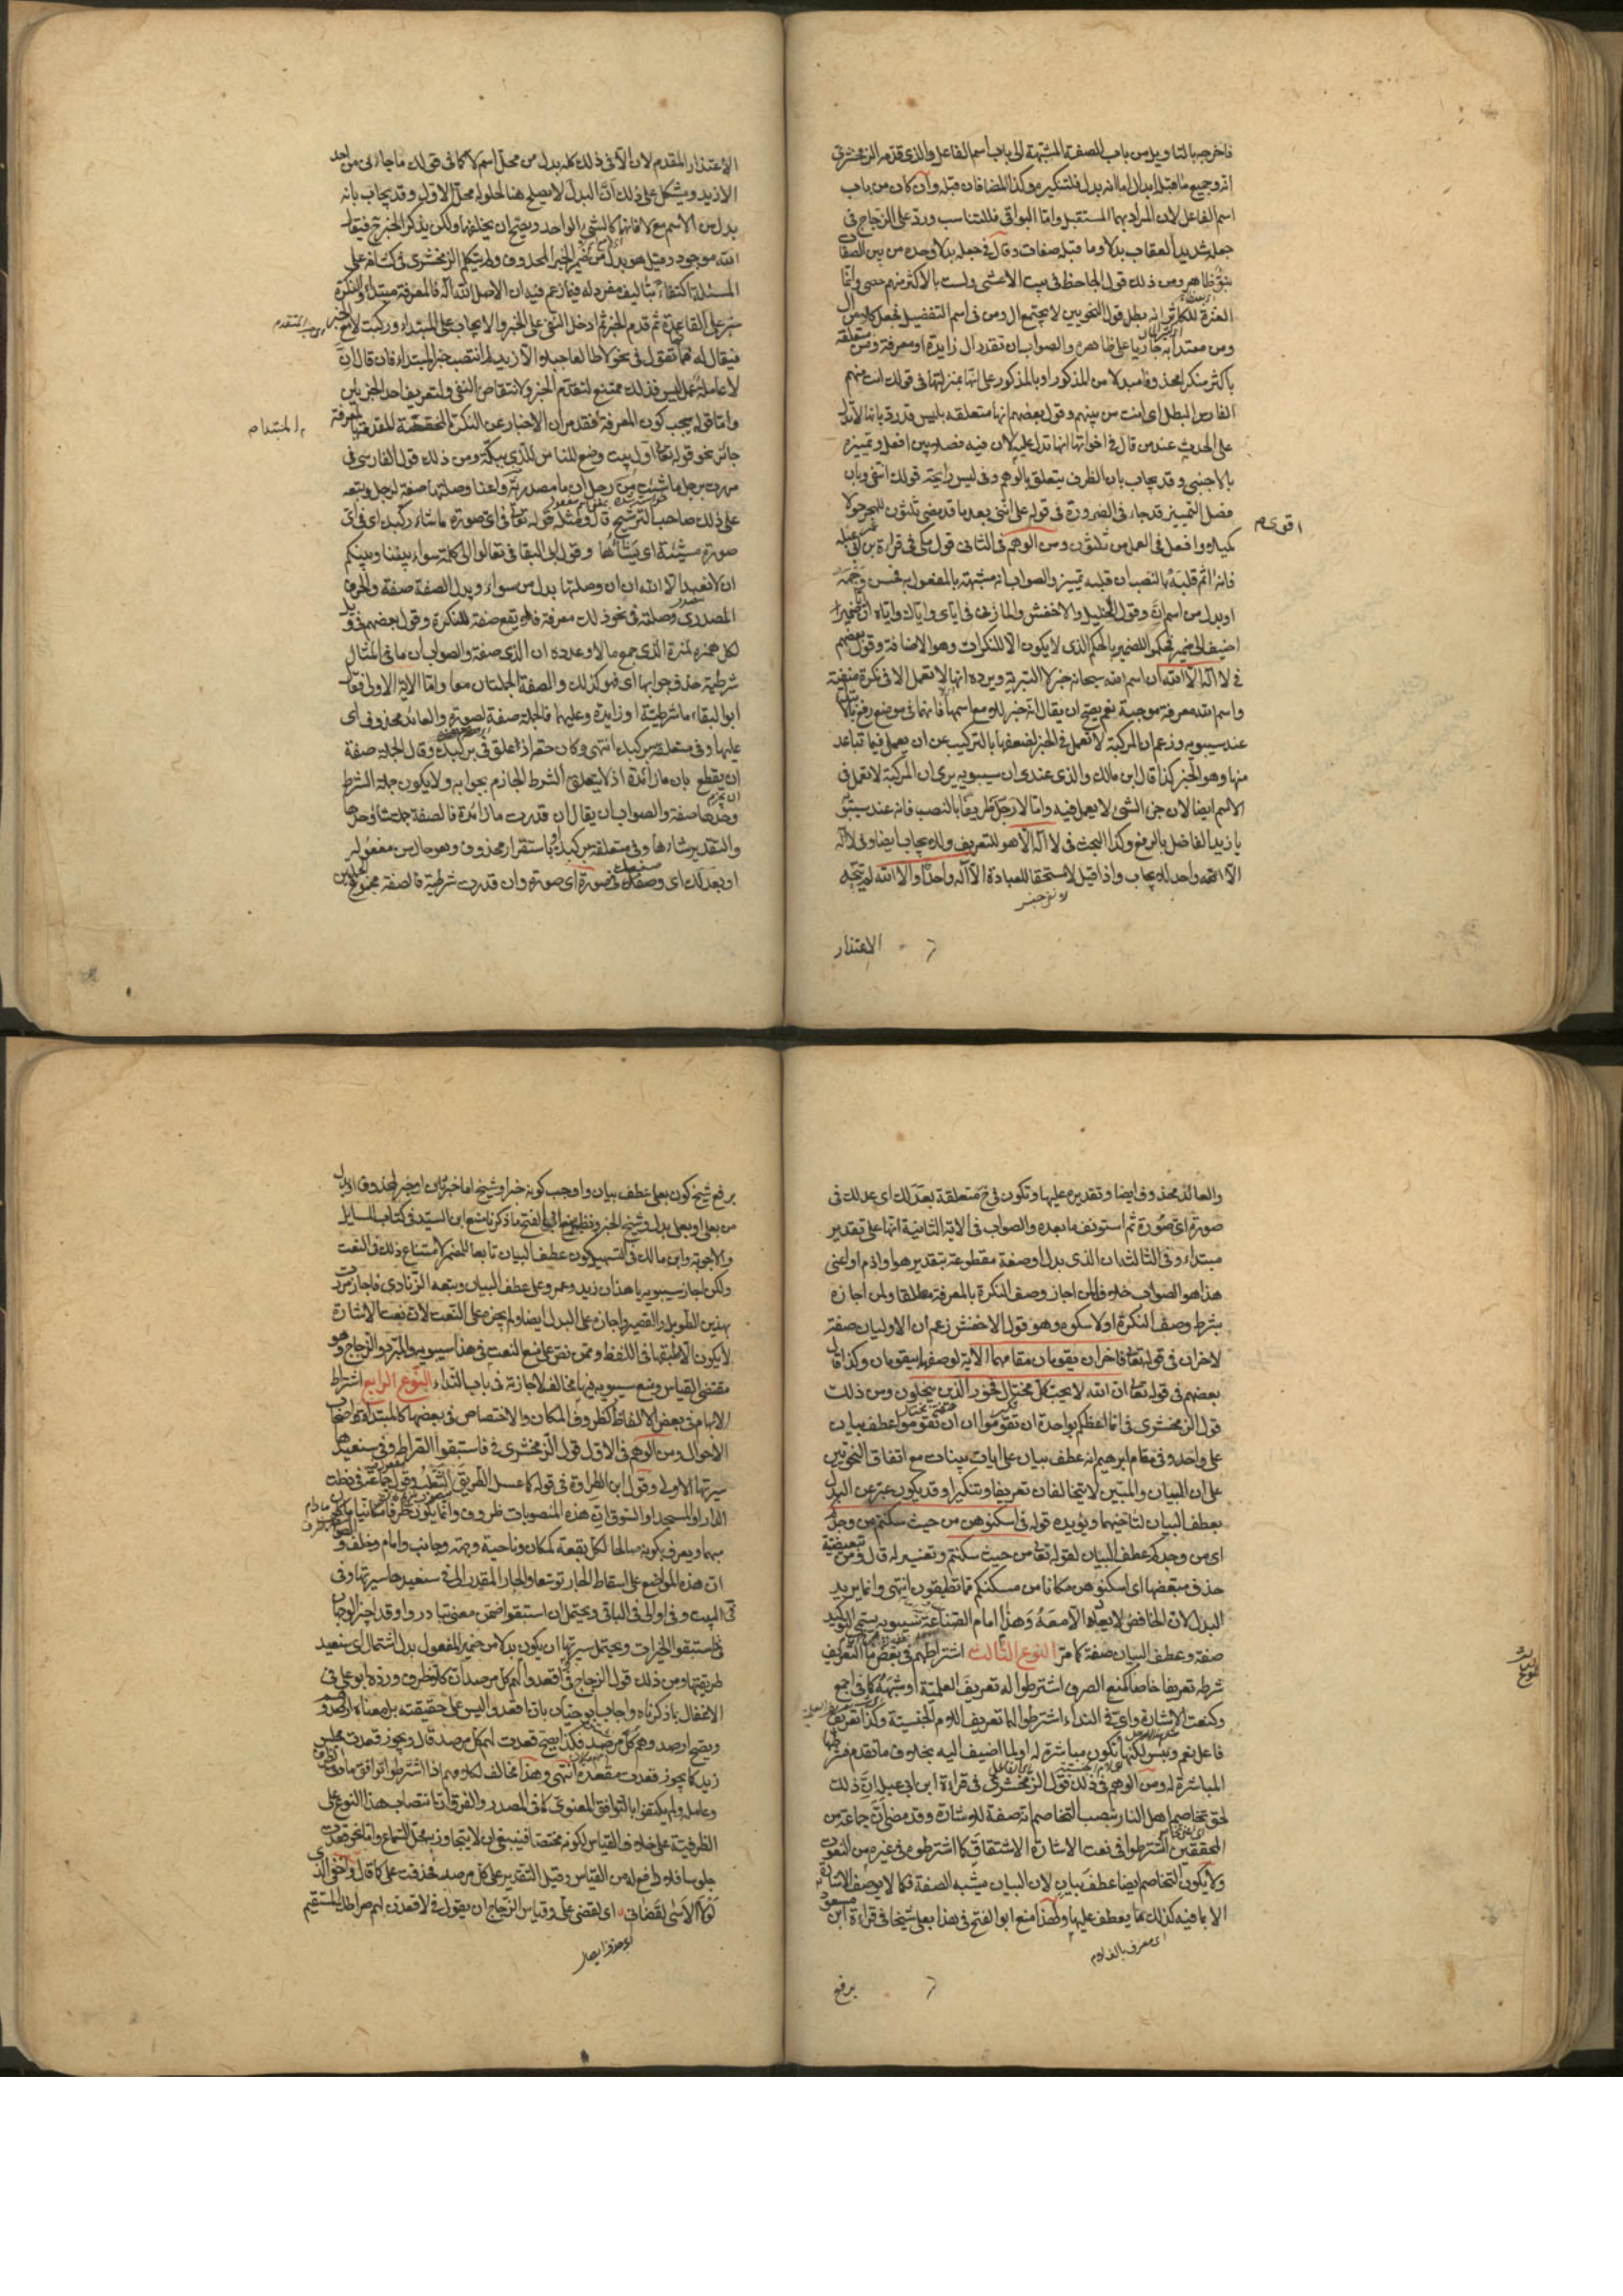 فاخرجه بالتاويل من باب الصفة المشبهة الى باب اسم الفاعل والذي قدمه الزمخشري
انه وجميع ما قبله ابدال اما انه بدل فلتنكيره وكذا المضافان قبله وان كان من باب
اسم الفاعل لان المراد بهما المستقبل واما البواقي فللتناسب ورد على الزجاج في
جعله شديد العقاب بدلا وما قبله صفات وقال في جعله بدلا وحده من بين الصفات
نبو ظاهر ومن ذلك قول الجاحظ في بيت الاعشى ولست بالاكثر منهم حصى وانما
العزة للكاثر انه يبطل قول النحويين لا يجتمع ال ومن في اسم التفضيل فجعل كلا من ال
ومن معتدا به جاريا على ظاهره والصواب ان تقدر ال زايدة او معرفة ومن متعلقة
باكثر منكرا محذوفا مبدلا من المذكور او بالمذكور على انها بمنزلتها في قولك انت منهم
الفارس البطل اي انت من بينهم وقول بعضهم انها متعلقه بليس قد رد بانها لا تدل
على الحدث عند من قال في اخواتها انها تدل عليه ولان فيه فصلا بين افعل وتمييزه
بالاجنبي وقد يجاب بان الظرف يتعلق بالوهم وفي ليس رايحة قولك انتفى وبان
فصل التمييز قد جاء في الضرورة في قوله على انني بعد ما قد مضى ثلثون للهجر حولا
اقوى م
كميلا وافعل في العمل من ثلثون ومن الوهم في الثاني قول مكي في قراءة بن ابي عبلة
فانه اثم قلبه بالنصب ان قلبه تمييز والصواب انه مشبه بالمفعول به كحسن وجهه
او بدل من اسم ان وقول الخليل والاخفش والمازني في اياي واياك واياه ان ايا ضمير
اضيف الى ضمير فحكموا للضمير بالحكم الذي لا يكون الا للنكرات وهو الاضافة وقول بعضهم
في لا اله الا الله ان اسم الله سبحانه خبر لا التبرية ويرده انها لا تعمل الا في نكرة منفية
واسم الله معرفة موجبة نعم يصح ان يقال انه خبر للا مع اسمها فانهما في موضع رفع بالابتدا
عند سيبويه وزعم ان المركبة لا تعمل في الخبر لضعفها بالتركيب عن ان يعمل فيما تباعد
منها وهو الخبر كذا قال ابن مالك والذي عندي ان سيبويه يرى ان المركبة لا تعمل في
الاسم ايضا لان جزء الشئ لا يعمل فيه واما لا رجل ظريفا بالنصب فانه عند سيبويه
يا زيد الفاضل بالرفع وكذا البحث في لا اله الا هو للتعريف ولا يجاب ايضا وفي لا اله
الا اله واحد للايجاب واذا قيل لا مستحقا للعبادة الا اله واحدا والا الله لم يتجه
الاعتذار
الاعتذار المقدم لان الا في ذلك كله بدل من محل اسم لا كما في قولك ما جاءني من احد
الا زيد ويشكل على ذلك ان البدل لا يصلح هنا لحلوله محل الاول وقد يجاب بانه
بدل من الاسم مع لا فانهما كالشئ الواحد ويصح ان يخلفهما ولكن يذكر الخبر ح فيقال
الله موجود وقيل هو بدل من ضمير الخبر المحذوف ولم يتكلم الزمخشري في كشافه على
المسئلة اكتفاء بتاليف مفرد له فيها زعم فيه ان الاصل الله اله فالمعرفة مبتداء والنكرة
خبر على القاعدة ثم قدم الخبر ثم ادخل النفي على الخبر والايجاب على المبتداء وركبت لا مع الخبر
فيقال له فما تقول في نحو لا طالعا جبلا الا زيد لم انتصب خبر المبتداء فان قال ان
لا عاملة عمل ليس فذلك ممتنع لتقدم الخبر ولانتقاض النفي ولتعريف احد الجزئين
واما قوله يجب كون المعرفة فقد مر ان الاخبار عن النكرة المخصصة المقدمة بالمعرفة
المبتداء م
جائز نحو قوله تعالى ان اول بيت وضع للناس للذي ببكة ومن ذلك قول الفارسي في
مررت برجل ما شئت من رجل ان ما مصدرية وانها وصلتها صفة لرجل وتبعه
على ذلك صاحب الترشيح قال ومثله قوله تعالى في اي صورة ما شاء ركبك اي في اي
صورة مشيئة اي يشاؤها وقول ابي البقا في تعالوا الى كلمة سواء بيننا وبينكم
ان لا نعبد الا الله ان ان وصلتها بدل من سواء وبدل الصفة صفة والحرف
المصدري وصلته في نحو ذلك معرفة فلا يقع صفة للنكرة وقول بعضهم في ويل
لكل همزة لمزة الذي جمع مالا وعدده ان الذي صفة والصواب ان ما في المثال
شرطية حذف جوابها اي فهو كذلك والصفة الجملتان معا واما الاية الاولى فقال
ابو البقاء ما شرطية او زايدة وعليهما فالجملة صفة لصورة والعائد محذوف اي
عليها وفي متعلقة بركبك انتهى وكان حقه اذ علق في بركبك وقال الجملة صفة
ان يقطع بان ما زائدة اذ لا يتعلق الشرط الجازم بجوابه ولا يكون جملة الشرط
وحدها صفة والصواب ان يقال ان قدرت ما زائدة فالصفة جملة شاء وحدها
والتقدير شاءها وفي متعلقة بركبك او باستقرار محذوف هو حال من مفعوله
او بعدلك اي وضعك في صورة اي صورة وان قدرت شرطية فالصفة مجموع الجملتين
والعائد محذوف ايضا وتقديره عليها وتكون في ح متعلقة بعدلك اي عدلك في
صورة اي صورة ثم استونف ما بعده والصواب في الاية الثانية انها على تقدير
مبتداء وفي الثالثة ان الذي بدل او صفة مقطوعة بتقدير هو او اذم او اعني
هذا هو الصواب خلافا لمن اجاز وصف النكرة بالمعرفة مطلقا ولمن اجازه
بشرط وصف النكرة اولا بنكرة وهو قول الاخفش زعم ان الاوليان صفة
لاخران في قوله تعالى فاخران يقومان مقامهما الاية لوصفه بيقومان وكذا قال
بعضهم في قوله تعالى ان الله لا يحب كل مختال فخور الذين يبخلون ومن ذلك
قول الزمخشري في انما اعظكم بواحدة ان تقوموا ان ان تقوموا عطف بيان
على واحدة وفي مقام ابرهيم انه عطف بيان على ايات بينات مع اتفاق النحويين
على ان البيان والمبين لا يتخالفان تعريفا وتنكيرا وقد يكون عبر عن البدل
بعطف البيان لتاخيهما ويؤيده قوله في اسكنوهن من حيث سكنتم من وجدكم
اي من وجدكم عطف البيان لقوله تعالى من حيث سكنتم وتفسير له قال ومن تبعيضية
حذف مبعضها اي اسكنوهن مكانا من مسكنكم مما تطيقون انتهى وانما يريد
البدل لان الخافض لا يعاد الا معه وهذا امام الصناعة سيبويه يسمي التوكيد
صفة وعطف البيان صفة كما مر النوع الثالث اشتراطهم في بعض ما التعريف
شرطه تعريفا خاصا كمنع الصرف اشترطوا له تعريف العلمية او شبهه كما في اجمع
وكنعت الاشارة واي في النداء اشترطوا لهما تعريف اللام الجنسية وكذا تعريف
فاعل نعم وبئس لكنها تكون مباشرة له او لما اضيف اليه بخلاف ما تقدم فشرطها
المباشرة له ومن الوهم في ذلك قول الزمخشري في قراءة ابن ابي عبلة ان ذلك
لحق تخاصم اهل النار بنصب التخاصم انه صفة للاشارة وقد مضى ان جماعة من
المحققين اشترطوا في نعت الاشارة الاشتقاق كما اشترطوه في غيره من النعوت
ولا يكون التخاصم ايضا عطف بيان لان البيان يشبه الصفة فكما لا يوصف الاشارة
الا بما فيه ال كذلك ما يعطف عليها ولهذا منع ابو الفتح في وهذا بعلي شيخا في قراءة ابن مسعود
اي معرف بالف ولام
برفع
برفع شيخ كون بعلي عطف بيان واوجب كونه خبرا وشيخ اما خبر ثان او خبر لمحذوف او بدل
من بعلي او بعلي بدل وشيخ الخبر ونظير منع ابي الفتح ما ذكرنا منع ابن السيد في كتاب المسايل
والاجوبة وابن مالك في التسهيل كون عطف البيان تابعا للمضمر لامتناع ذلك في النعت
ولكن اجاز سيبويه يا هذان زيد وعمرو على عطف البيان وتبعه الزيادي فاجاز مررت
بهذين الطويل والقصير واجازه على البدل ايضا ولم يجزه على النعت لان نعت الاشارة
لا يكون الا طبقها في اللفظ وممن نص على منع النعت في هذا سيبويه والمبرد والزجاج وهو
مقتضى القياس ومنع سيبويه فيها مخالف لاجازته في باب النداء النوع الرابع اشتراط
الابهام في بعض الالفاظ كظروف المكان والاختصاص في بعضها كالمبتداء واصحاب
الاحوال ومن الوهم في الاول قول الزمخشري في فاستبقوا الصراط وفي سنعيدها
سيرتها الاولى وقول ابن الطراوة في قوله كما عسل الطريق الثعلب وقول جماعة في دخلت
الدار او المسجد او السوق ان هذه المنصوبات ظروف وانما يكون ظرفا مكانيا ما كان
مبهما ويعرف بكونه صالحا لكل بقعة كمكان وناحية وجهة وجانب وامام وخلف والصواب
ان هذه المواضع على اسقاط الجار توسعا والجار المقدر الى في سنعيدها سيرتها وفي
في البيت وفي او الى في الباقي ويحتمل ان استبقوا ضمن معنى تبادروا وقد اجيز الوجهان
في فاستبقوا الخيرات ويحتمل سيرتها ان يكون بدلا من ضمير المفعول بدل اشتمال اي سنعيد
طريقتها ومن ذلك قول الزجاج في واقعدوا لهم كل مرصد ان كلا ظرف ورده ابو علي في
الاغفال بما ذكرناه واجاب ابو حيان بان اقعدوا ليس على حقيقته بل معناه ارصدوهم
ويصح ارصدوهم كل مرصد فكذا يصح قعدت لهم كل مرصد قال ويجوز قعدت مجلس
زيد كما يجوز قعدت مقعده انتهى وهذا مخالف لكلامهم اذا اشترطوا توافق مادتي الظرف
وعامله ولم يكتفوا بالتوافق المعنوي كما في المصدر والفرق ان انتصاب هذا النوع على
الظرفية على خلاف القياس لكونه مختصا فينبغي ان لا يتجاوز به محل السماع واما نحو قعدت
جلوسا فلا دافع له من القياس وقيل التقدير على كل مرصد فحذفت على كما قال واخفي الذي
لولا الاسى لقضاني اي لقضى علي وقياس الزجاج ان يقول في لاقعدن لهم صراطك المستقيم